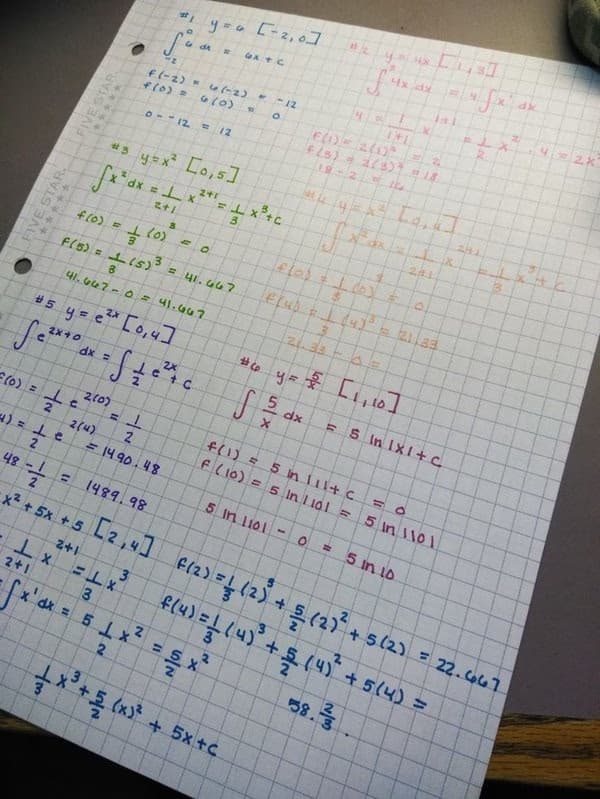 #1 y=6 [-2,0]
∫₋₂⁰ 6 dx = 6x + C
F(-2) = 6(-2) = -12
F(0) = 6(0) = 0
0 - -12 = 12
#2 y=4x [1,3]
∫₁³ 4x dx = 4∫x¹ dx
4 = 1/(1+1) x¹⁺¹ = 1/2 x² · 4 = 2x²
F(1) = 2(1)² = 2
F(3) = 2(3)² = 18
18 - 2 = 16
FIVE STAR
FIVE STAR
#3 y=x² [0,5]
∫x² dx = 1/(2+1) x²⁺¹ = 1/3 x³+C
F(0) = 1/3 (0)³ = 0
F(5) = 1/3 (5)³ = 41.667
41.667 - 0 = 41.667
#4 y=x² [0,4]
∫x² dx = 1/(2+1) x²⁺¹ = 1/3 x³ + C
F(0) = 1/3 (0)³ = 0
F(4) = 1/3 (4)³ = 21.33
21.33 - 0 =
#5 y=e²ˣ [0,4]
∫e²ˣ⁺⁰ dx = ∫ 1/2 e²ˣ + C
F(0) = 1/2 e²⁽⁰⁾ = 1/2
4) = 1/2 e²⁽⁴⁾ = 1490.48
48 - 1/2 = 1489.98
#6 y = 5/x [1,10]
∫ 5/x dx = 5 ln|x| + C
F(1) = 5 ln|1| + C = 0
F(10) = 5 ln|10| = 5 ln|10|
5 ln|10| - 0 = 5 ln 10
x² + 5x + 5 [2,4]
1/(2+1) x²⁺¹ = 1/3 x³
∫x¹ dx = 5 1/2 x² = 5/2 x²
1/3 x³ + 5/2 (x)² + 5x + C
F(2) = 1/3 (2)³ + 5/2 (2)² + 5(2) = 22.667
F(4) = 1/3 (4)³ + 5/2 (4)² + 5(4) =
38. 2/3